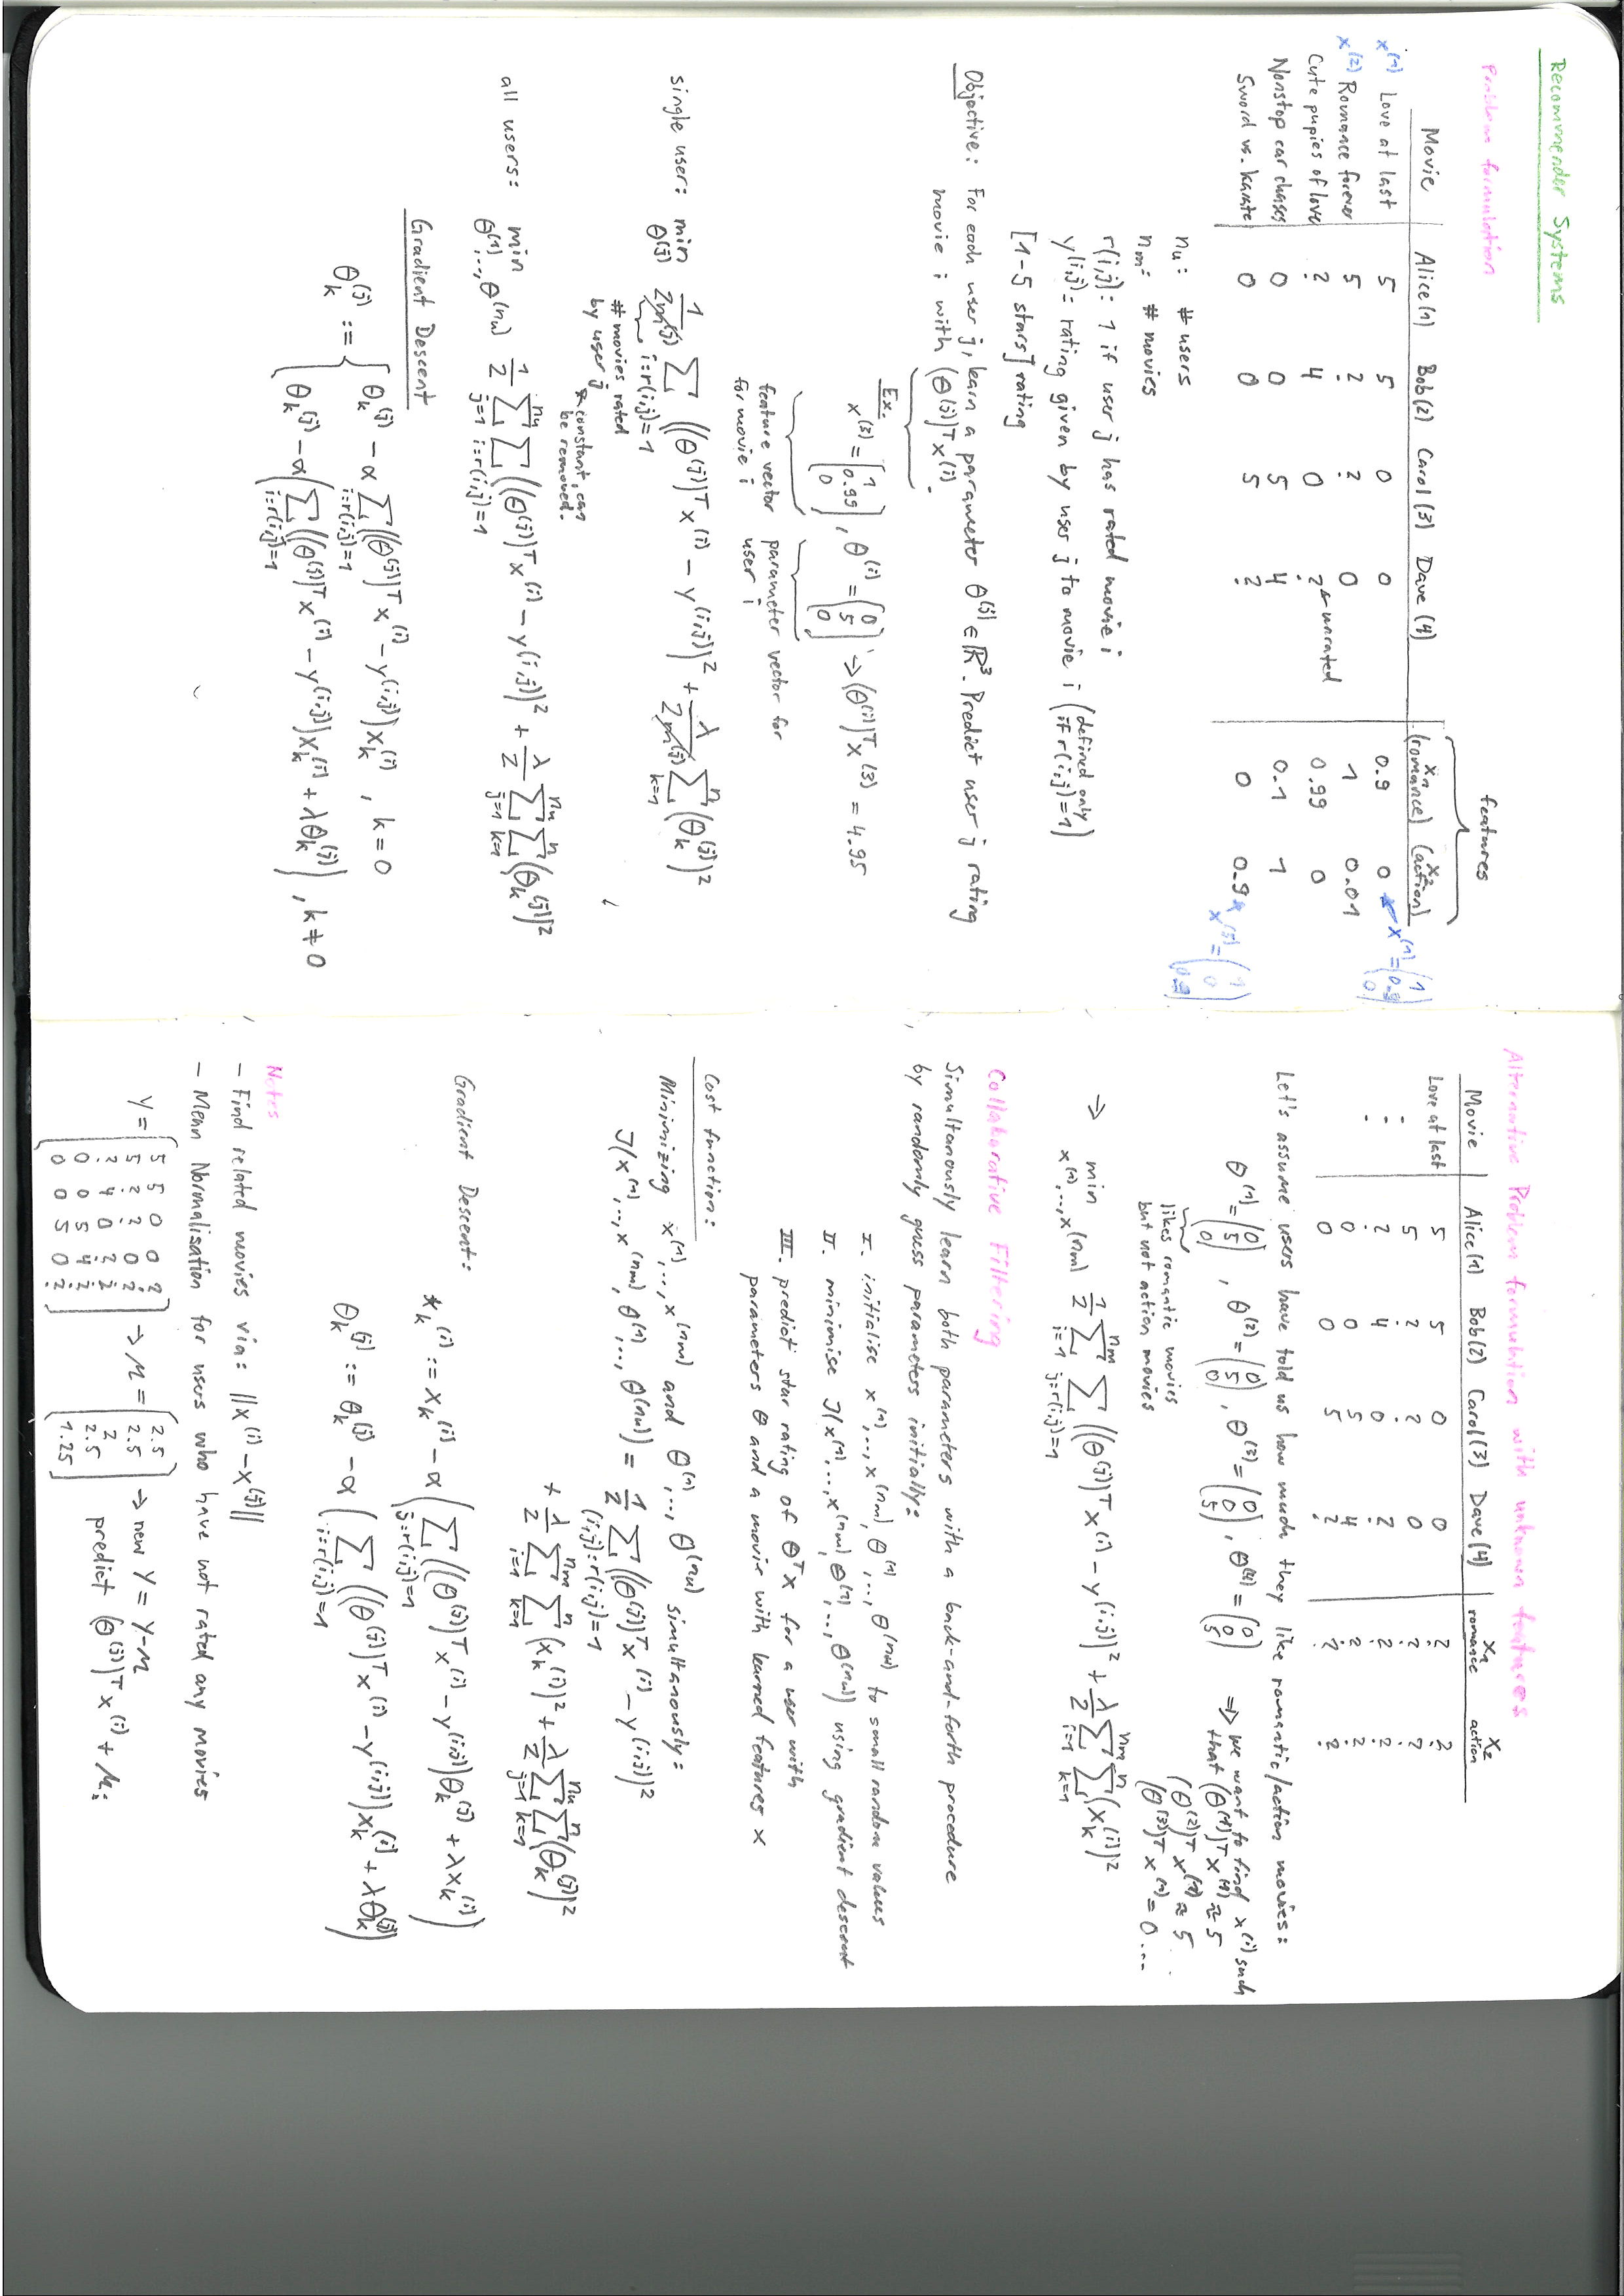 Recommender Systems
Problem formulation
features
Movie Alice(1) Bob(2) Carol(3) Dave(4) x₁ (romance) x₂ (action)
x⁽¹⁾ Love at last 5 5 0 0 0.9 0 x⁽¹⁾ = (1 0.9 0)
x⁽²⁾ Romance forever 5 ? ? 0 1 0.01
Cute pupies of love ? 4 0 ? ← unrated 0.99 0
Nonstop car chases 0 0 5 4 0.1 1
Sword vs. karate 0 0 5 ? 0 0.9 x⁽⁵⁾ = (1 0 0.9)
n_u: # users
n_m: # movies
r(i,j): 1 if user j has rated movie i
y⁽ⁱ,ʲ⁾ = rating given by user j to movie i (defined only if r(i,j)=1)
[1-5 stars] rating
Objective: For each user j, learn a parameter θ⁽ʲ⁾ ∈ ℝ³. Predict user j rating
movie i with (θ⁽ʲ⁾)ᵀx⁽ⁱ⁾.
Ex.
x⁽³⁾ = [1 0.99 0], θ⁽ⁱ⁾ = [0 5 0] → (θ⁽ⁱ⁾)ᵀx⁽³⁾ = 4.95
feature vector parameter vector for
for movie i user i
single user: min θ⁽ʲ⁾ 1/(2m⁽ʲ⁾) Σ i:r(i,j)=1 ((θ⁽ʲ⁾)ᵀx⁽ⁱ⁾ − y⁽ⁱ,ʲ⁾)² + λ/(2m⁽ʲ⁾) Σ k=1 n (θₖ⁽ʲ⁾)²
# movies rated
by user j
constant, can
be removed.
all users: min θ⁽¹⁾,..,θ⁽ⁿᵘ⁾ 1/2 Σ j=1 n_u Σ i:r(i,j)=1 ((θ⁽ʲ⁾)ᵀx⁽ⁱ⁾ − y⁽ⁱ,ʲ⁾)² + λ/2 Σ j=1 n_u Σ k=1 n (θₖ⁽ʲ⁾)²
Gradient Descent
θₖ⁽ʲ⁾ := { θₖ⁽ʲ⁾ − α Σ i:r(i,j)=1 ((θ⁽ʲ⁾)ᵀx⁽ⁱ⁾ − y⁽ⁱ,ʲ⁾)xₖ⁽ⁱ⁾ , k = 0
θₖ⁽ʲ⁾ − α(Σ i:r(i,j)=1 ((θ⁽ʲ⁾)ᵀx⁽ⁱ⁾ − y⁽ⁱ,ʲ⁾)xₖ⁽ⁱ⁾ + λθₖ⁽ʲ⁾) , k ≠ 0
Alternative Problem formulation with unknown features
Movie Alice(1) Bob(2) Carol(3) Dave(4) x₁ romance x₂ action
Love at last 5 5 0 0 ? ?
- 5 ? ? 0 ? ?
- ? 4 0 ? ? ?
- 0 0 5 4 ? ?
0 0 5 ? ? ?
Let's assume users have told us how much they like romantic/action movies:
θ⁽¹⁾ = (0 5 0), θ⁽²⁾ = (0 5 0), θ⁽³⁾ = (0 0 5), θ⁽⁴⁾ = (0 0 5) ⇒ we want to find x⁽ⁱ⁾ such
that (θ⁽¹⁾)ᵀx⁽¹⁾ ≈ 5
(θ⁽²⁾)ᵀx⁽¹⁾ ≈ 5
(θ⁽³⁾)ᵀx⁽¹⁾ = 0 ...
likes romantic movies
but not action movies
→ min x⁽¹⁾,..,x⁽ⁿᵐ⁾ 1/2 Σ i=1 n_m Σ j:r(i,j)=1 ((θ⁽ʲ⁾)ᵀx⁽ⁱ⁾ − y⁽ⁱ,ʲ⁾)² + λ/2 Σ i=1 n_m Σ k=1 n (xₖ⁽ⁱ⁾)²
Collaborative Filtering
Simultanously learn both parameters with a back-and-forth procedure
by randomly guess parameters initially:
I. initialise x⁽¹⁾,..,x⁽ⁿᵐ⁾,θ⁽¹⁾,..,θ⁽ⁿᵘ⁾ to small random values
II. minimise J(x⁽¹⁾,..,x⁽ⁿᵐ⁾,θ⁽¹⁾,..,θ⁽ⁿᵘ⁾) using gradient descent
III. predict star rating of θᵀx for a user with
parameters θ and a movie with learned features x
Cost function:
Minimizing x⁽¹⁾,..,x⁽ⁿᵐ⁾ and θ⁽¹⁾,..,θ⁽ⁿᵘ⁾ simultanously:
J(x⁽¹⁾,..,x⁽ⁿᵐ⁾,θ⁽¹⁾,..,θ⁽ⁿᵘ⁾) = 1/2 Σ (i,j):r(i,j)=1 ((θ⁽ʲ⁾)ᵀx⁽ⁱ⁾ − y⁽ⁱ,ʲ⁾)²
+ λ/2 Σ i=1 n_m Σ k=1 n (xₖ⁽ⁱ⁾)² + λ/2 Σ j=1 n_u Σ k=1 n (θₖ⁽ʲ⁾)²
Gradient Descent:
xₖ⁽ⁱ⁾ := xₖ⁽ⁱ⁾ − α(Σ j:r(i,j)=1 ((θ⁽ʲ⁾)ᵀx⁽ⁱ⁾ − y⁽ⁱ,ʲ⁾)θₖ⁽ʲ⁾ + λxₖ⁽ⁱ⁾)
θₖ⁽ʲ⁾ := θₖ⁽ʲ⁾ − α(Σ i:r(i,j)=1 ((θ⁽ʲ⁾)ᵀx⁽ⁱ⁾ − y⁽ⁱ,ʲ⁾)xₖ⁽ⁱ⁾ + λθₖ⁽ʲ⁾)
Notes
– Find related movies via: ||x⁽ⁱ⁾ − x⁽ʲ⁾||
– Mean Normalisation for users who have not rated any movies
5 5 0 0 ? 2.5
5 ? ? 0 ? 2.5 → new Y = Y−μ
Y = ? 4 0 ? ? → μ = 2 predict (θ⁽ʲ⁾)ᵀx⁽ⁱ⁾ + μᵢ
0 0 5 4 ? 2.5
0 0 5 0 ? 1.25